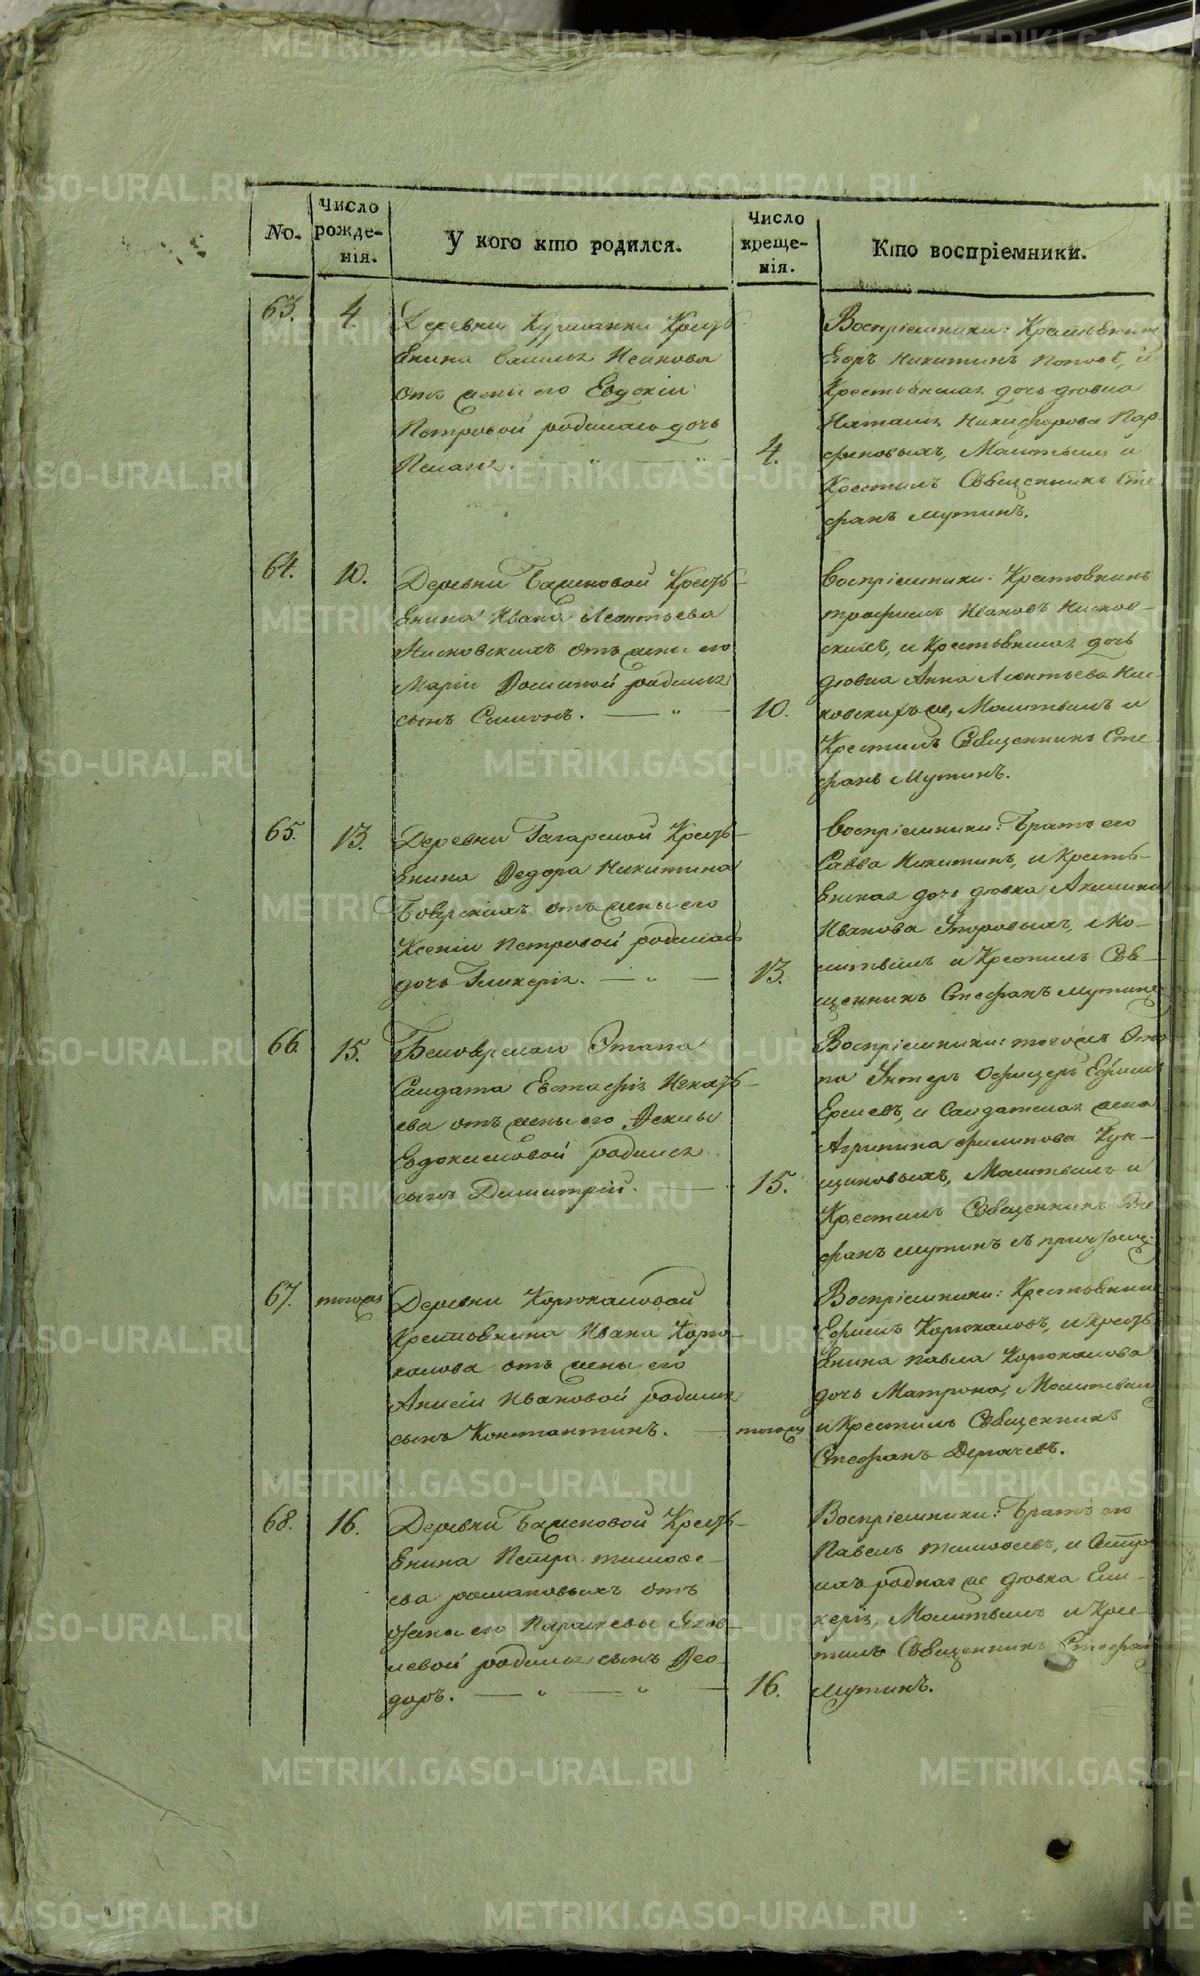 No.
Число рожде-нія.
У кого кто родился.
Число креще-нія.
Кто воспріемники.
63.
4.
Деревни Курманки Кресть
янина
отъ жены его Евдокіи
Петровой родилась дочь
4.
Воспріемники: Крестьянинъ
Егоръ Никитинъ Поповъ, и
Крестьянская дочь дѣвка
Наталья Никифорова Пар
феновыхъ, Молитвилъ и
Крестилъ Священникъ Сте
фанъ Мутинъ.
64.
10.
Деревни Баженовой Кресть-
янина Ивана Леонтьева
отъ жены его
Маріи родился
сынъ Симонъ.
10.
Воспріемники: Крестьянинъ
Трофимъ Ивановъ
скихъ, и Крестьянская дочь
дѣвка Анна Леонтьева
же, Молитвилъ и
Крестилъ Священникъ Сте
фанъ Мутинъ.
65.
13.
Деревни Гагарской Кресть-
янина Ѳедора Никитина
отъ жены его
Ксеніи Петровой родилась
дочь Гликерія.
13.
Воспріемники: Братъ его
Савва Никитинъ, и Кресть-
янская дочь дѣвка Акилина
Иванова Егоровыхъ, Мо-
литвилъ и Крестилъ Свя-
щенникъ Стефанъ Мутинъ
66.
15.
Белоярскаго Этапа
Салдата Евстафія
ева отъ жены его Ѳеклы
Евдокимовой родился
сынъ Димитрій.
15.
Воспріемники: тогожъ Эта
па Унтеръ Офицеръ Ефимъ
и Салдатская жена
Агрипина Филипова
Молитвилъ и
Крестилъ Священникъ Сте
фанъ Мутинъ съ причтомъ
67.
тогожъ
Деревни Корюкаловой
Крестьянина Ивана Корю-
калова отъ жены его
Анисіи Ивановой родился
сынъ Константинъ.
тогожъ
Воспріемники: Крестьянинъ
Ефимъ Корюкаловъ, и Кресть
янина Павла Корюкалова
дочь Матрона, Молитвилъ
и Крестилъ Священникъ
Стефанъ
68.
16.
Деревни Баженовой Кресть-
янина Петра Тимофе-
ева Романовыхъ отъ
жены его Параскевы Яков-
левой родился сынъ Ѳео
доръ.
16.
Воспріемники: Братъ его
Павелъ Тимофеевъ, и Сестра
ихъ родная же дѣвка Гли-
керія, Молитвилъ и Крес-
тилъ Священникъ Стефанъ
Мутинъ.
METRIKI.GASO-URAL.RU